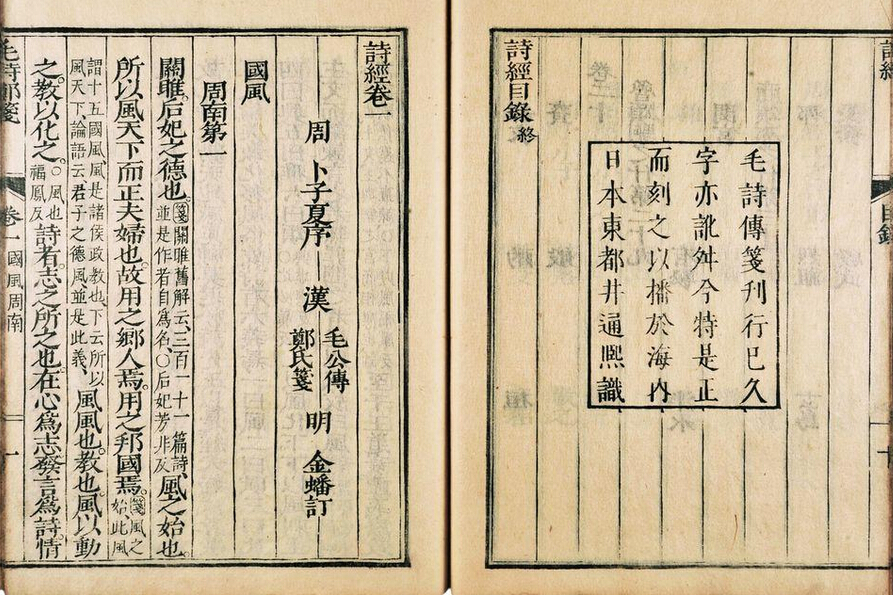 詩經
目錄
十
毛詩傳箋刊行已久
字亦訛舛今特是正
而刻之以播於海内
日本東都井通熙識
詩經目錄終
詩經卷一
周 卜子夏序 漢 毛公傳 鄭氏箋 明 金蟠訂
國風
周南第一
關雎后妃之德也箋關雎舊解云三百一十一篇詩並是作者自爲名○后妃芳非反風之始也
所以風天下而正夫婦也故用之鄉人焉用之邦國焉箋風之始此風
謂十五國風風是諸侯政教也下云所以風天下論語云君子之德風並是此義風風也教也風以動
之教以化之○風也福鳳反詩者志之所之也在心爲志發言爲詩情
毛詩鄭箋
卷一
國風周南
一